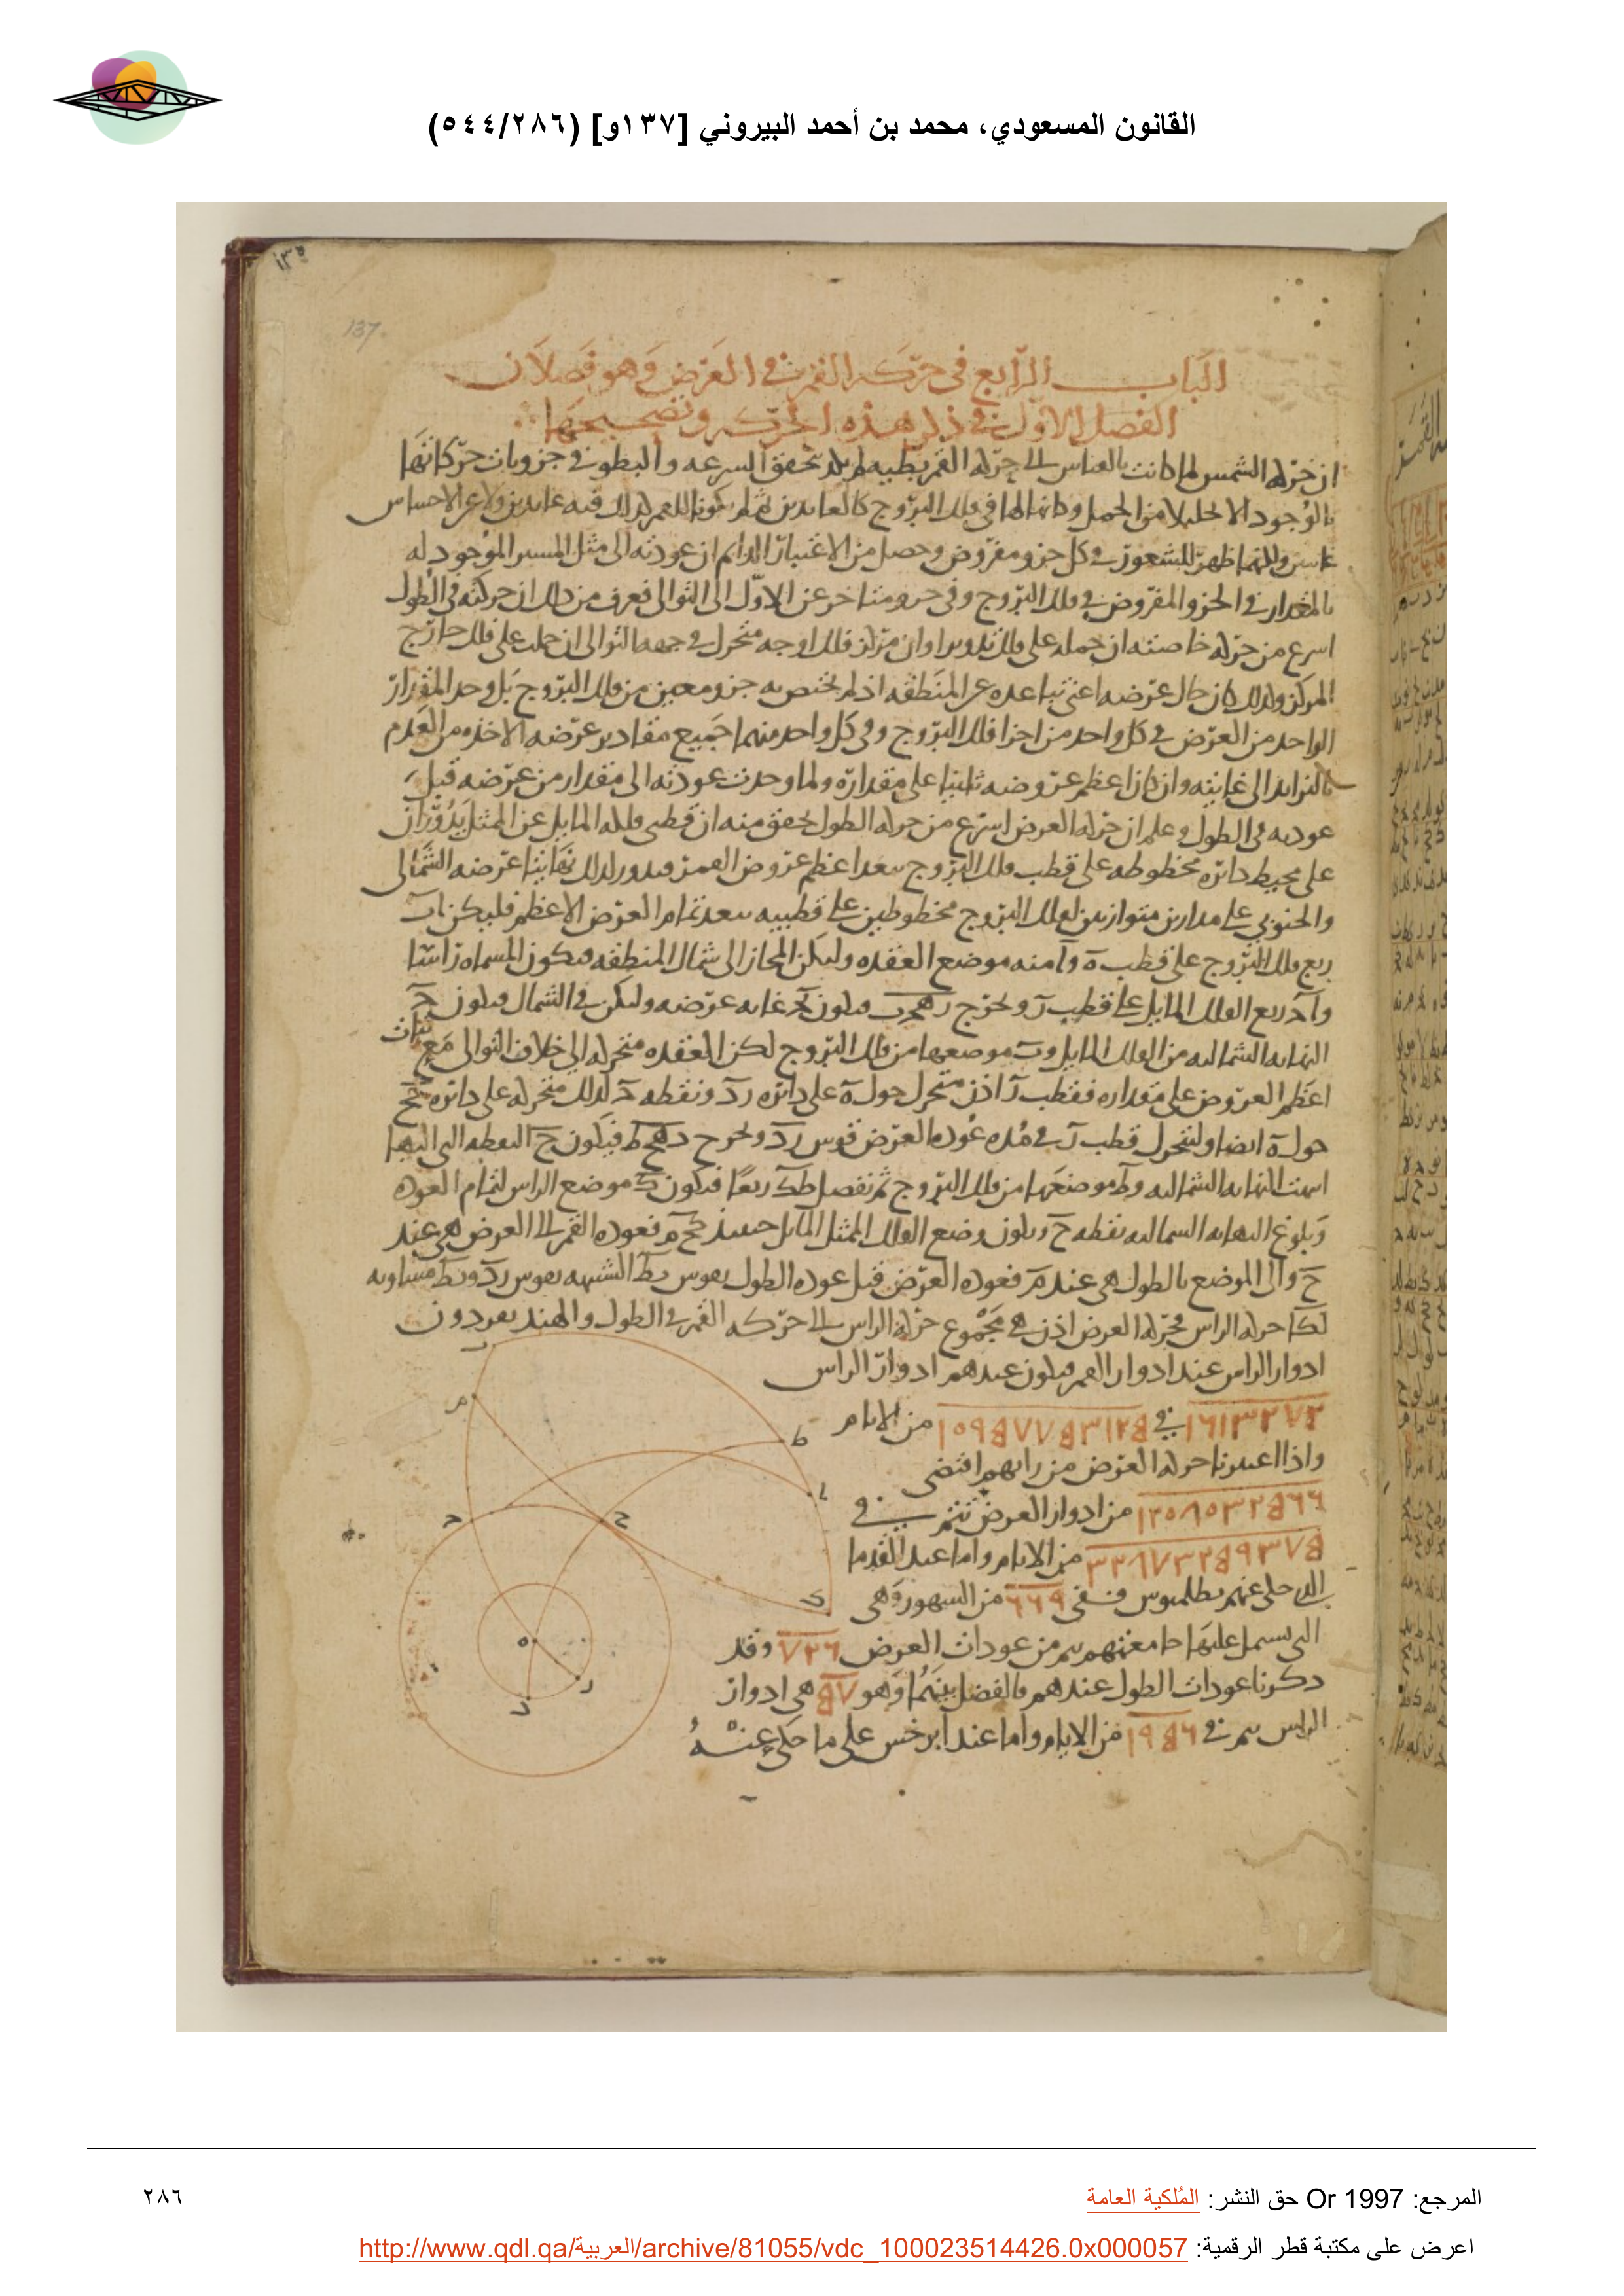 القانون المسعودي، محمد بن أحمد البيروني [١٣٧و] (٥٤٤/٢٨٦)
137.
الباب الرابع في حركة القمر في العرض وهو فصلان
الفصل الاول في ذكر هذه الحركه وتصحيحها
ان حركه الشمس لما كانت بالقياس الى حركه القمر بطيه لم تحقق السرعه والبطو في جزويات حركاتها
بالوجود الا من الجمل وكانها في فلك البروج
للشعور في كل جزو مفروض وحصل من الاعتبار الدايم ان عودته الى مثل المسير الموجود له
بالمقدار في الجزو المفروض في فلك البروج وفي جزو متاخر عن الاول الى التوالى فعرف من ذلك ان حركته في الطول
اسرع من حركه خاصته ان حمله على فلك تدوير او ان مركز فلك اوجه متحرك في جهه التوالى ان حملت على فلك خارج
المركز ولذلك كان حال عرضه اعنى تباعده عن المنطقه اذ لم يختص به جزو معين من فلك البروج بل وجد المقدار
الواحد من العرض في كل واحد من اجزا فلك البروج وفي كل واحد منهما جميع مقادير عرضه الاخذه من العدم
بالتزايد الى غايته وان كان اعظم عروضه ثابتا على مقداره ولما وجدت عودته الى مقدار من عرضه قبل
عودته في الطول وعلم ان حركه العرض اسرع من حركه الطول تحقق منه ان قطبى فلكه المايل عن الممثل يدوران
على محيط دائره مخطوطه على قطب فلك البروج ببعد اعظم عروض القمر فيدور لذلك نهايتا عرضه الشمالى
والجنوبي على مدارين متوازيين لفلك البروج مخطوطين على قطبيه ببعد تمام العرض الاعظم فليكن اب
ربع فلك البروج على قطب ه وا منه موضع العقده وليكن المجاز الى شمال المنطقه فيكون المسماه راسا
واج ربع الفلك المايل على قطب ر ونخرج رهجب فيكون بج غايه عرضه وليكن في الشمال فيكون ج
النهايه الشماليه من الفلك المايل وب موضعها من فلك البروج لكن العقده متحركه الى خلاف التوالى مع ثبات
اعظم العروض على مقداره فقطب ر اذن متحرك حول ه على دائره رد ونقطه ج لذلك متحركه على دائره جح
حول ه ايضا وليتحرك قطب ر في مده عوده العرض قوس رد ونخرج دهحط فيكون ح النقطه التى اليها
انتهت النهايه الشماليه وط موضعها من فلك البروج ثم نفصل طك ربعا فيكون ك موضع الراس لتمام العوده
وبلوغ النهايه الشماليه نقطه ح ويكون وضع الفلك الممثل المايل حينئذ كحم فعوده القمر الى العرض هى عند
ح والى الموضع بالطول هى عند م فعوده العرض قبل عوده الطول بقوس بط الشبيهه بقوس رد وبط مساويه
لكا حركه الراس فحركه العرض اذن هى مجموع حركه الراس الى حركه القمر في الطول والهند يفردون
ادوار الراس عند ادوار القمر فيكون عندهم ادوار الراس
من الايام
واذا اعتبرنا حركه العرض من رايهم اقتضى
من ادوار العرض تتم في
من الايام واما عند القدما
الذى حكى عنهم بطلميوس ففى ٦٦٩ من الشهور وهى
التى يشتمل عليها جامعتهم يتم من عودات العرض ٧٢٦ وقد
ذكرنا عودات الطول عندهم فالفضل بينهما وهو هى ادوار
الراس يتم في من الايام واما عند ابرخس على ما حكى عنه
المرجع: Or 1997 حق النشر: المُلكية العامة
٢٨٦
اعرض على مكتبة قطر الرقمية: http://www.qdl.qa/العربية/archive/81055/vdc_100023514426.0x000057